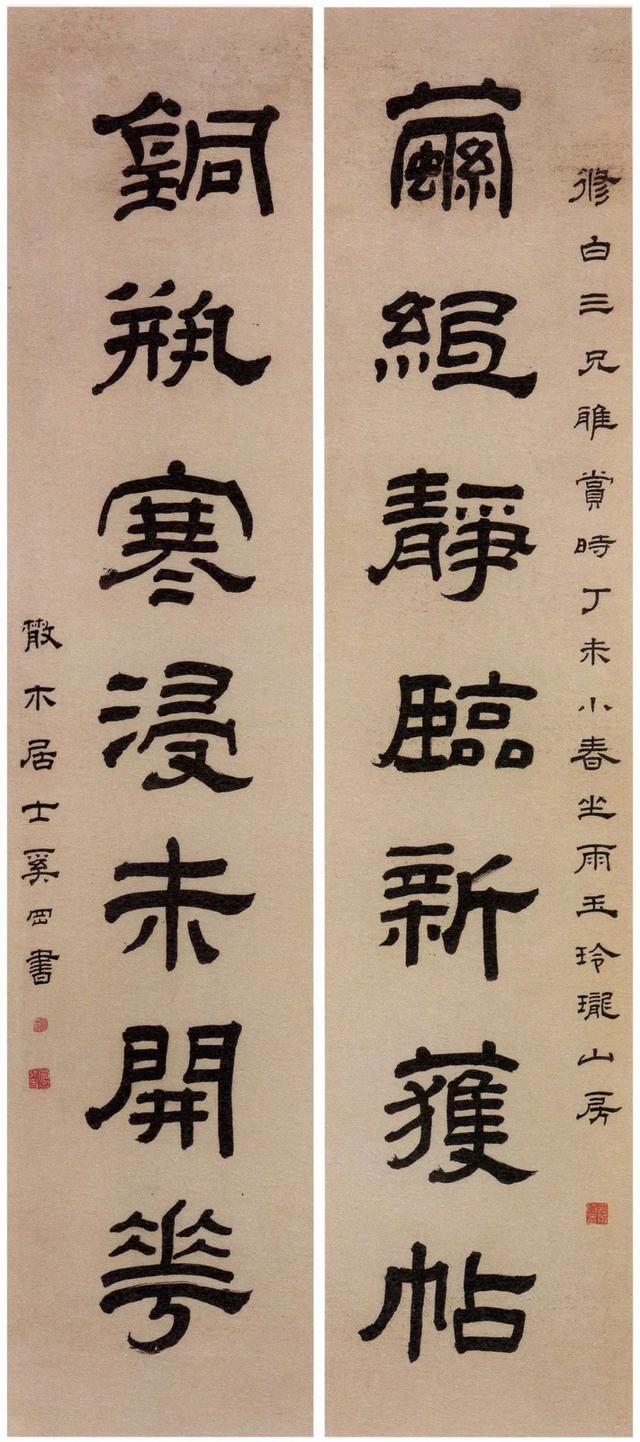 修白三兄雅賞時丁未小春坐雨玉玲瓏山房
繭紙靜臨新獲帖
銅瓶寒浸未開花
散木居士奚岡書